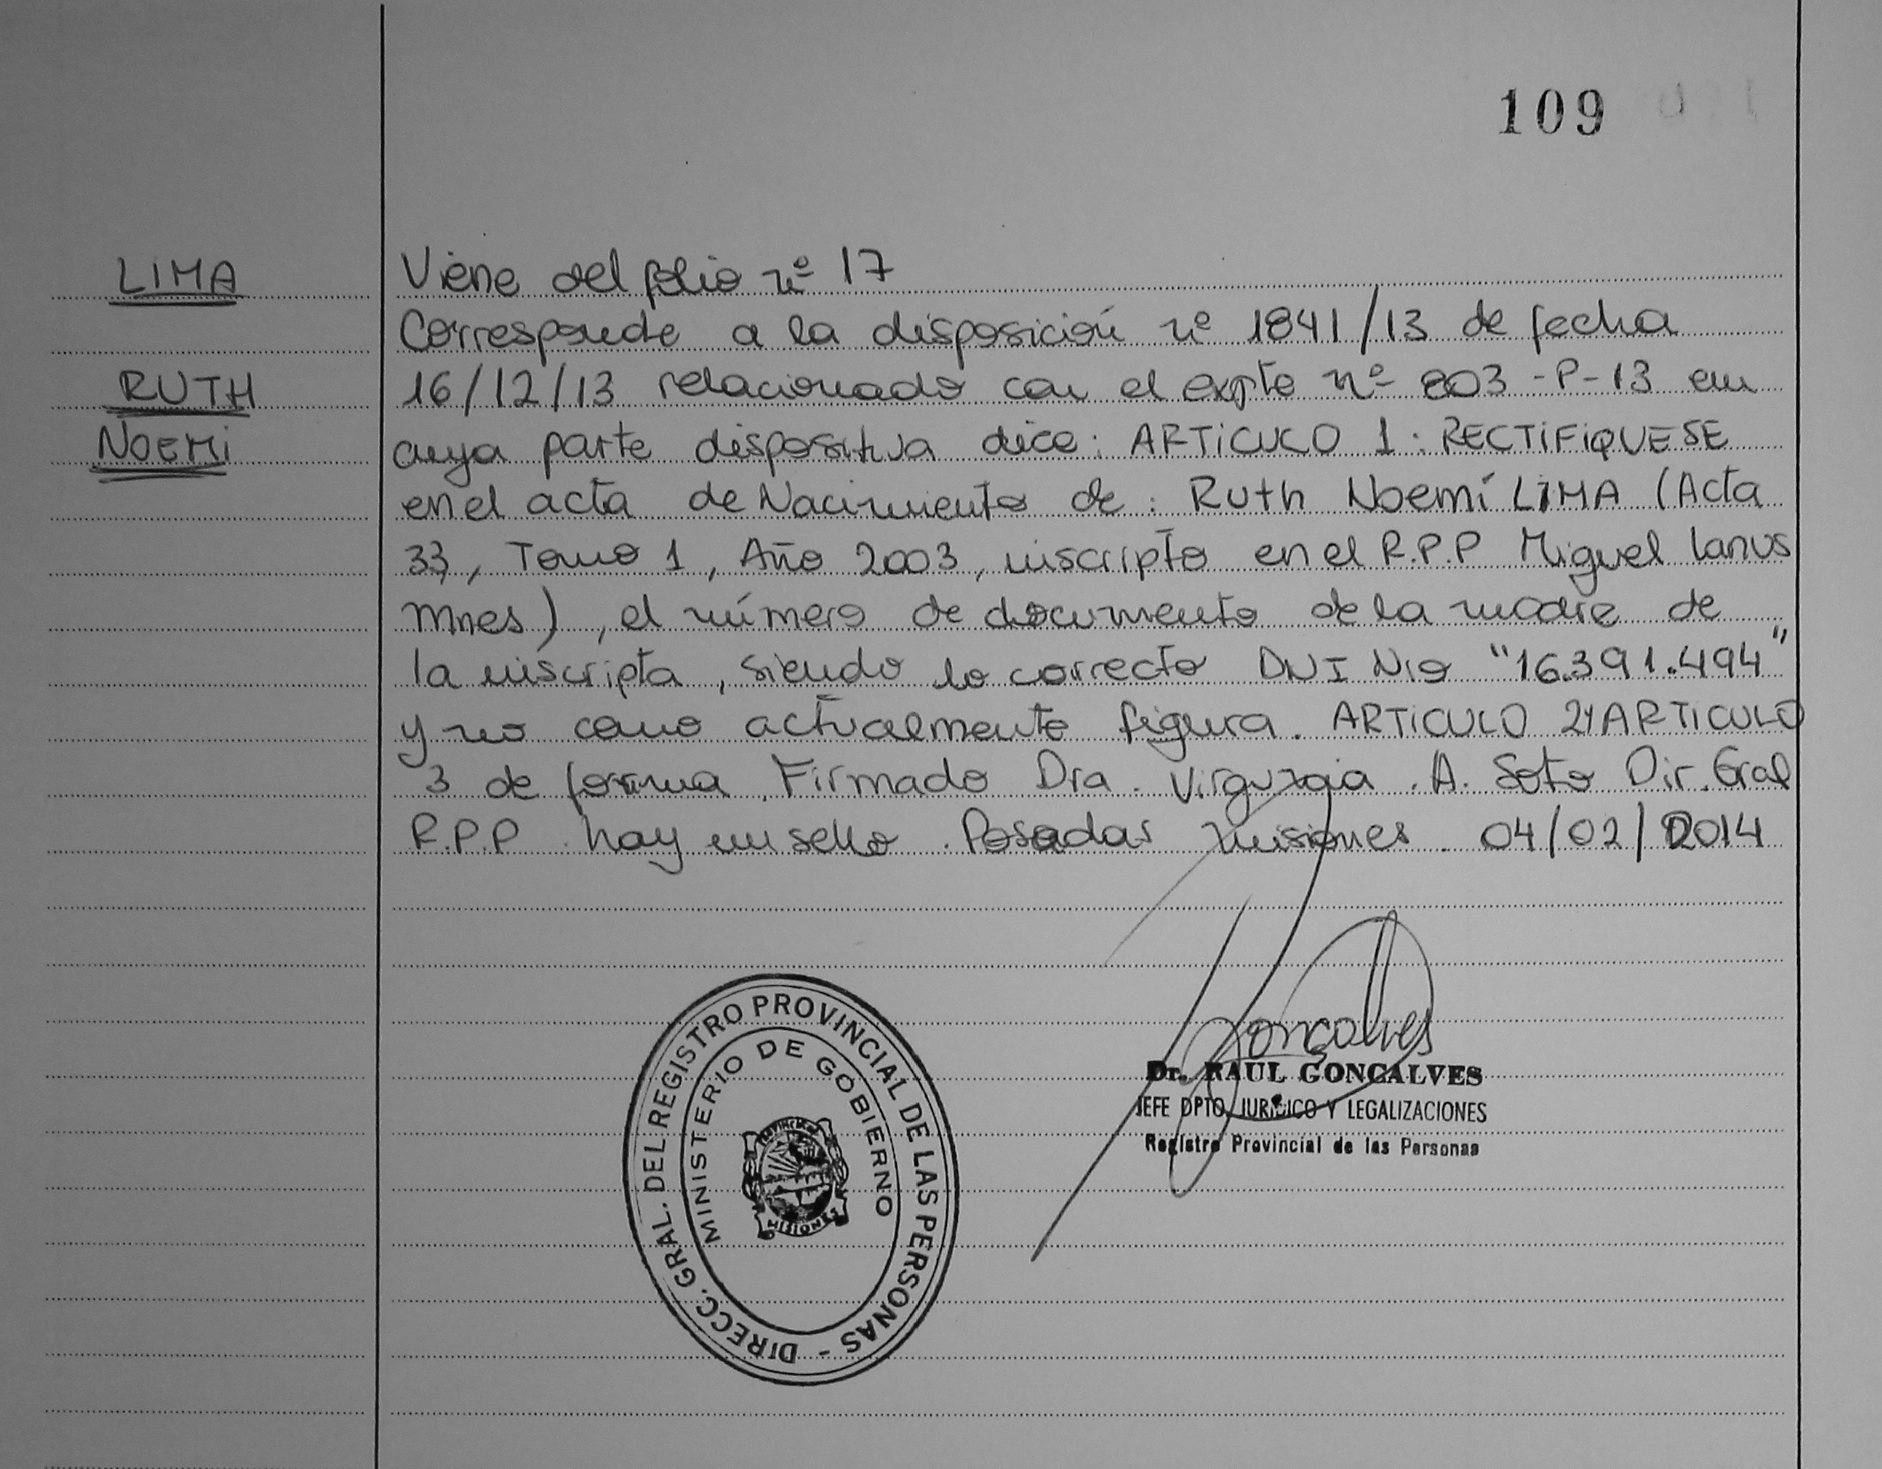 109
LIMA
Viene del folio nº 17
Corresponde a la disposición nº 1841/13 de fecha
RUTH
16/12/13 relacionado con el expte nº 803-P-13 en
NOEMI
cuya parte dispositiva dice: ARTICULO 1: RECTIFIQUESE
en el acta de Nacimiento de: Ruth Noemí LIMA (Acta
33, Tomo 1, Año 2003, inscripto en el R.P.P Miguel Lanus
Mnes), el número de documento de la madre de
la inscripta, siendo lo correcto DNI Nro "16.391.494"
y no como actualmente figura. ARTICULO 2 Y ARTICULO
3 de forma. Firmado Dra. A. Soto Dir. Gral
R.P.P hay un sello. Posadas Misiones. 04/02/2014
Goncalves
Dr. RAUL GONCALVES
JEFE DPTO. JURIDICO Y LEGALIZACIONES
Registro Provincial de las Personas
DIRECC. GRAL. DEL REGISTRO PROVINCIAL DE LAS PERSONAS -
MINISTERIO DE GOBIERNO
MISIONES